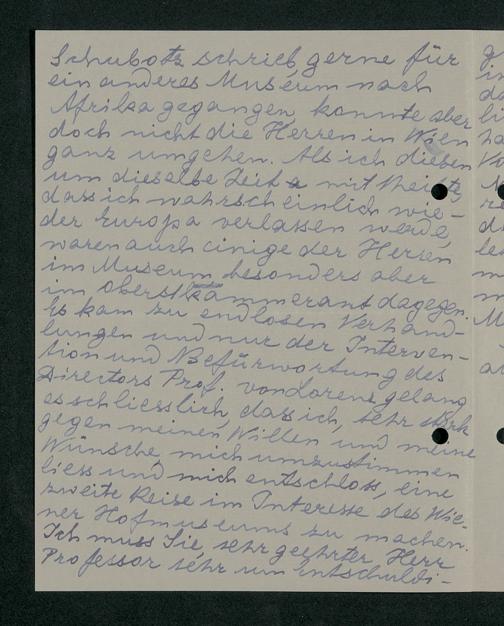 Schubotz schrieb, gerne für
ein anderes Museum nach
Afrika gegangen, konnte aber
doch nicht die Herren in Wien
ganz umgehen. Als ich diesen
um dieselbe Zeit mit
dass ich wahrscheinlich wie-
der Europa verlassen werde,
waren auch einige der Herren
im Museum besonders aber
im Oberstkämmerant dagegen.
Es kam zu endlosen Verhand-
lungen und nur der Interven-
tion und Befürwortung des
Directors Prof. von Lorenz gelang
es schliesslich, dass ich, sehr stark
gegen meinen Willen und meine
Wünsche, mich umzustimmen
liess und mich entschloss, eine
zweite Reise im Interesse des Wie-
ner Hofmuseums zu machen.
Ich muss Sie, sehr geehrter Herr
Professor sehr um Entschuldi-